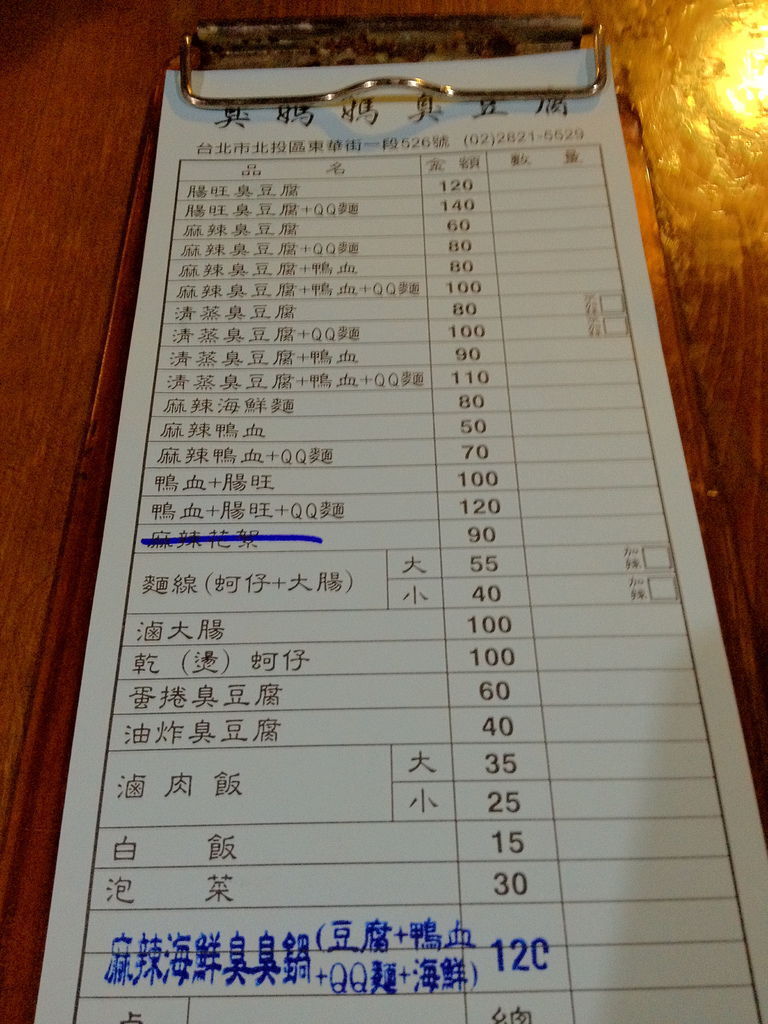 臭媽媽臭豆腐
台北市北投區東華街一段526號 (02)2821-5629
品 名 金額 數 量
腸旺臭豆腐 120
腸旺臭豆腐+QQ麵 140
麻辣臭豆腐 60
麻辣臭豆腐+QQ麵 80
麻辣臭豆腐+鴨血 80
麻辣臭豆腐+鴨血+QQ麵 100
清蒸臭豆腐 80
清蒸臭豆腐+QQ麵 100
清蒸臭豆腐+鴨血 90
清蒸臭豆腐+鴨血+QQ麵 110
麻辣海鮮麵 80
麻辣鴨血 50
麻辣鴨血+QQ麵 70
鴨血+腸旺 100
鴨血+腸旺+QQ麵 120
麻辣花絮 90
麵線(蚵仔+大腸) 大 55 加辣
小 40 加辣
滷大腸 100
乾(燙)蚵仔 100
蛋捲臭豆腐 60
油炸臭豆腐 40
滷肉飯 大 35
小 25
白 飯 15
泡 菜 30
麻辣海鮮臭臭鍋(豆腐+鴨血
+QQ麵+海鮮) 120
總